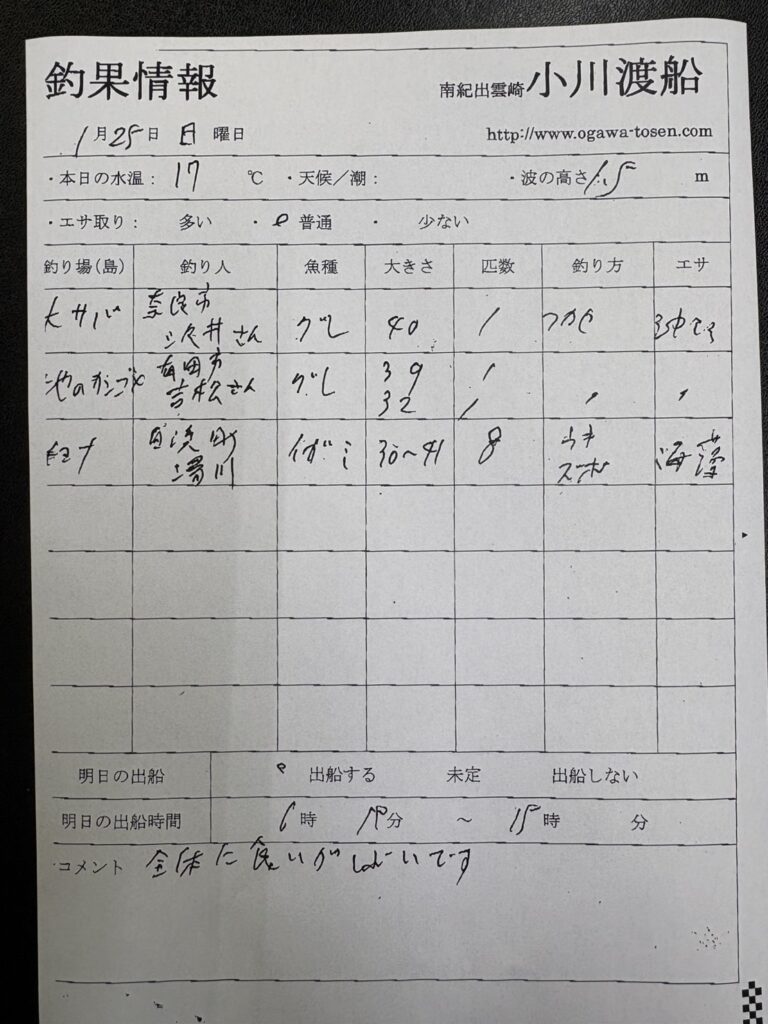 釣果情報 南紀出雲崎小川渡船
1月25日 日曜日 http://www.ogawa-tosen.com
・本日の水温: 17 ℃ ・天候/潮: ・波の高さ 1.5 m
・エサ取り: 多い ・ 普通 ・ 少ない
釣り場(島) 釣り人 魚種 大きさ 匹数 釣り方 エサ
大サバ 奈良市
井さん グレ 40 1 フカセ
池の 有田市 グレ 39 1
吉松さん 32 1
白浜町 イガミ 30~41 8 ウキ 海藻
川 ズボ
明日の出船 出船する 未定 出船しない
明日の出船時間 6時 分 ~ 15時 分
コメント 全体に食いが しぶいです